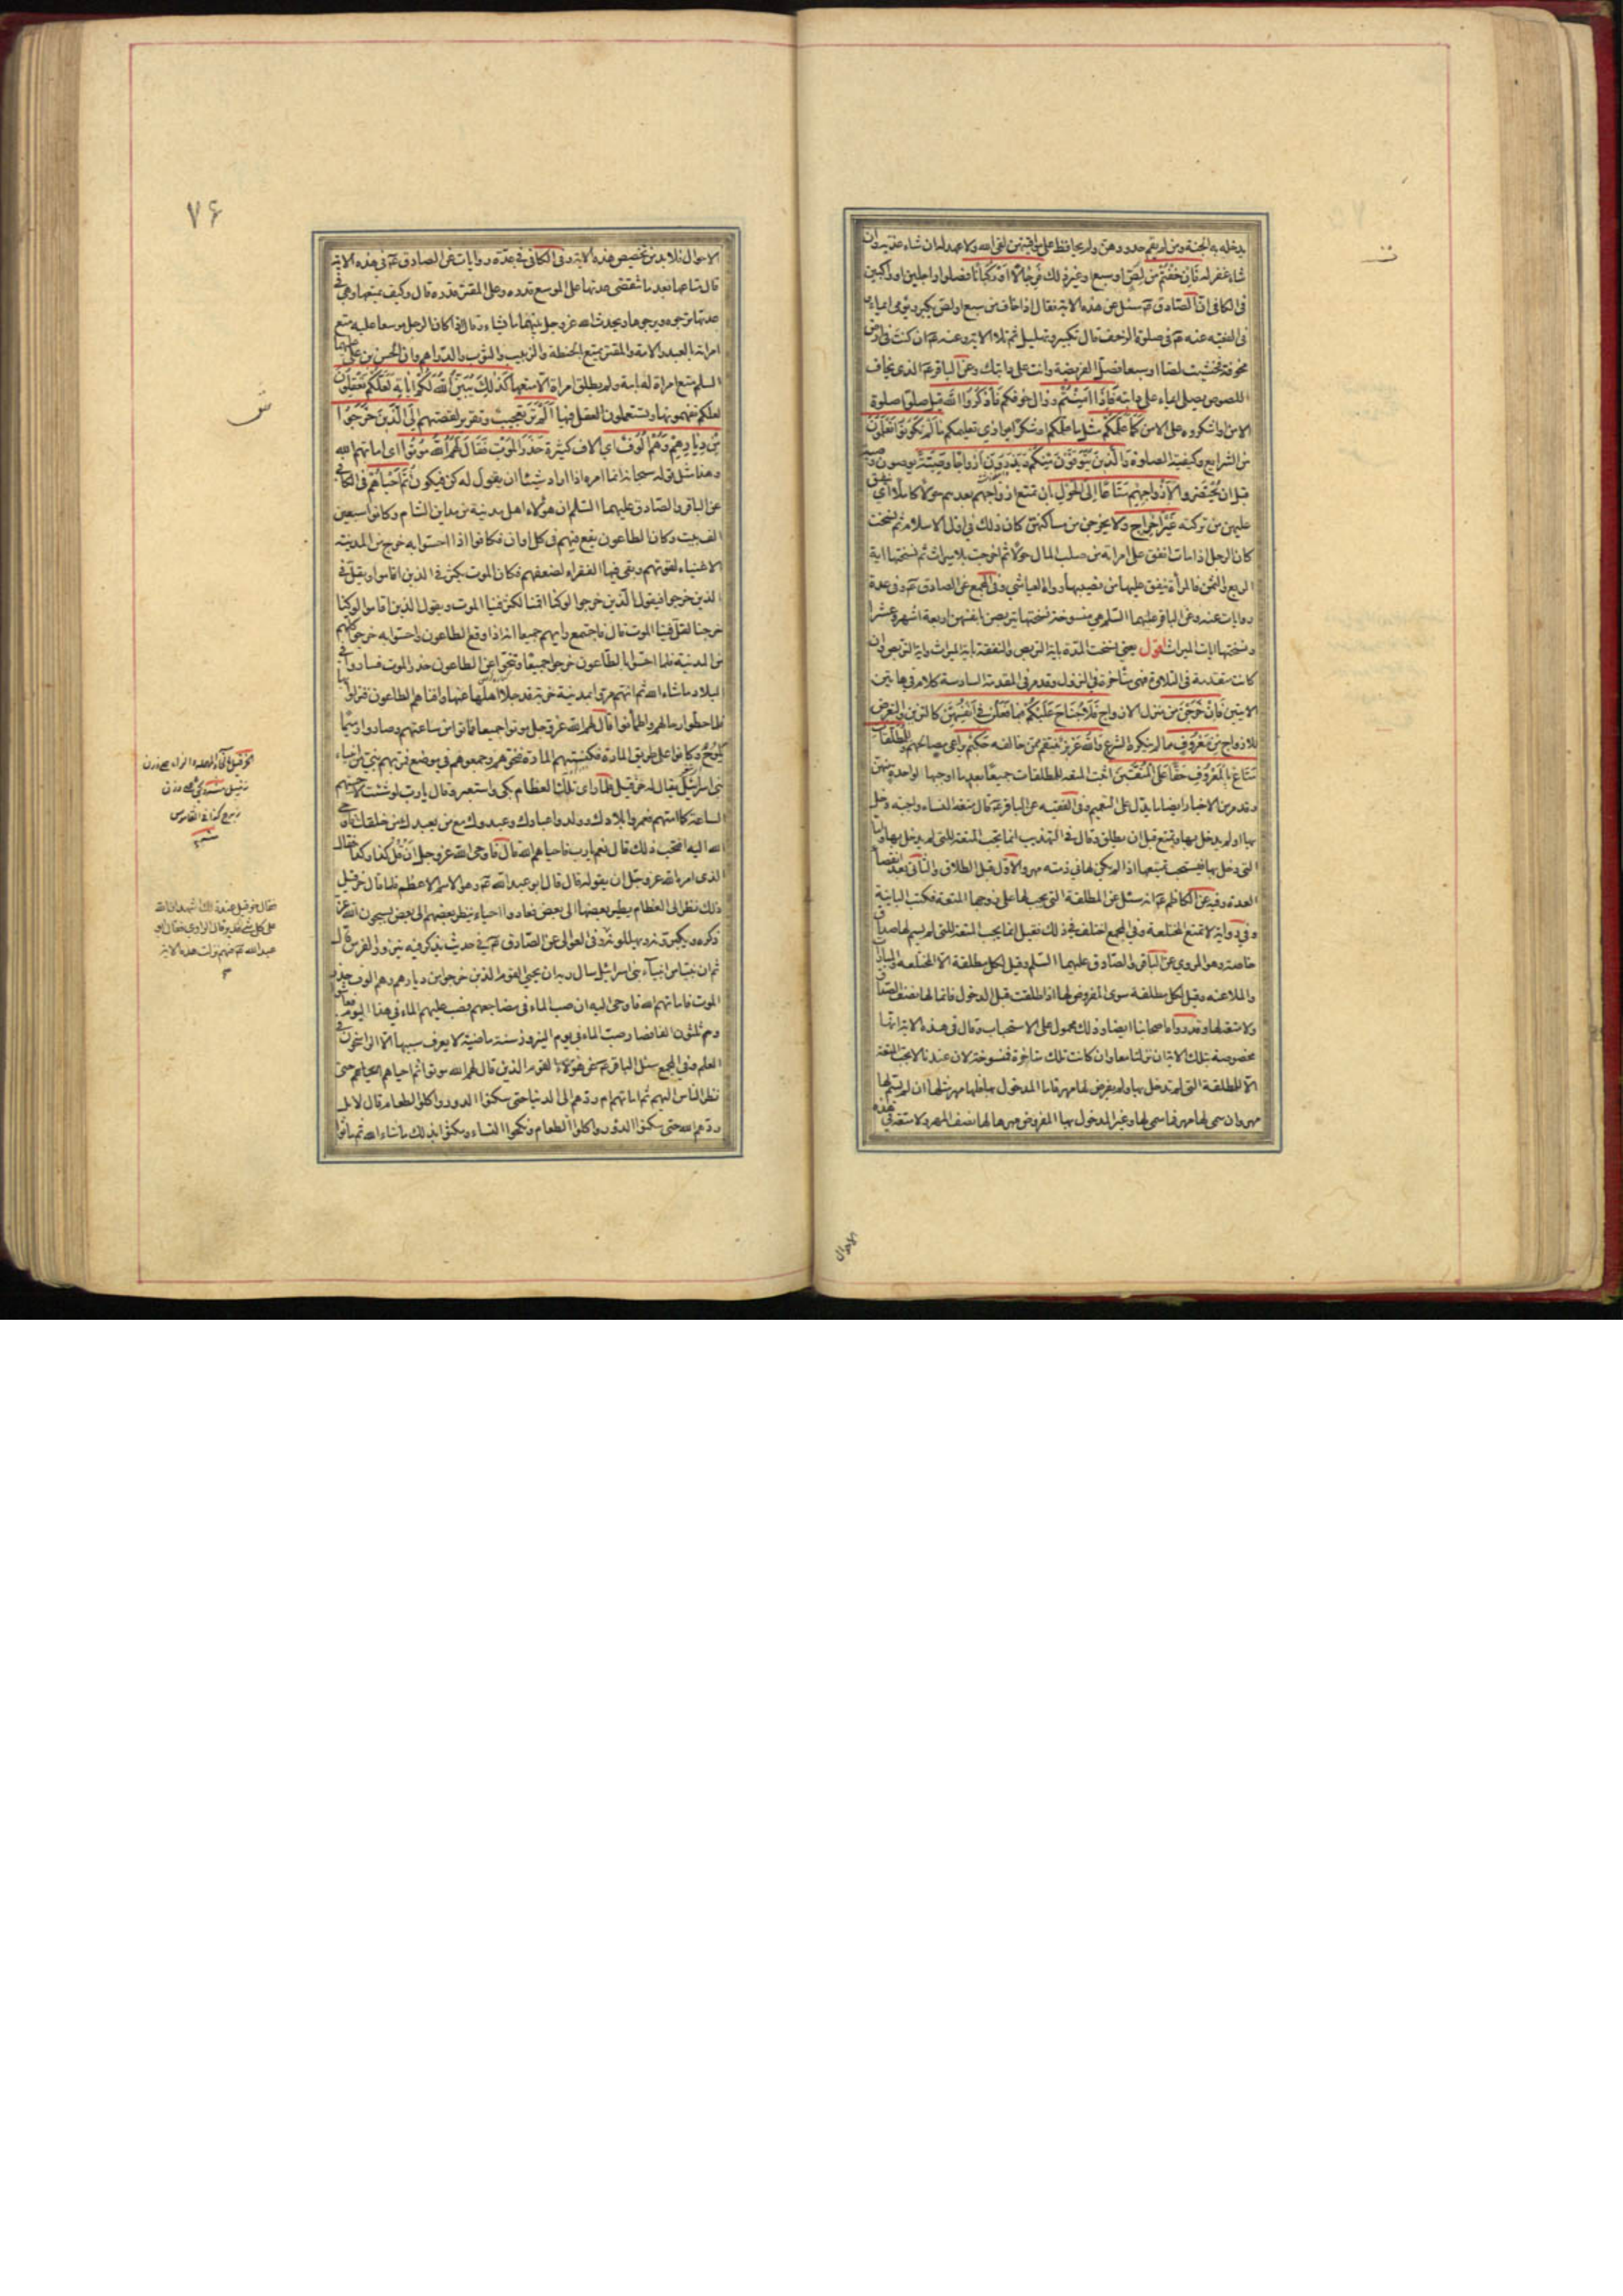 يدخله به الجنة ومن لم يقم حدودهن ولم يحافظ على مواقيتهن لقى الله ولا عهد له ان شاء عذبه وان
شاء غفر له فَاِنْ خِفْتُمْ من لص او سبع او غير ذلك فَرِجَالًا اَوْ رُكْبَانًا فصلوا راجلين او راكبين
فى الكافى ان الصادق ع سئل عن هذه الاية فقال اذا خاف من سبع او لص يكبر ويومى ايماء
فى الفقيه عنه ع فى صلوة الزحف قال تكبير وتهليل ثم تلا الاية وعنه ع ان كنت فى ارض
مخوفة فخشيت لصا او سبعا فصل الفريضة وانت على دابتك وعن الباقر ع الذى يخاف
اللصوص يصلى ايماء على دابته فَاِذَا اَمِنْتُمْ وزال خوفكم فَاذْكُرُوا اللهَ قيل صلوا صلوة
الامن او اشكروه على الامن كَمَا عَلَّمَكُمْ مثل ما علمكم او شكرا يوازى تعليمكم مَا لَمْ تَكُونُوا تَعْلَمُونَ
من الشرايع وكيفية الصلوة وَالَّذِينَ يُتَوَفَّوْنَ مِنْكُمْ وَيَذَرُونَ اَزْوَاجًا وَصِيَّةً يوصون وصية
قبل ان يحتضروا لِاَزْوَاجِهِمْ مَتَاعًا اِلَى الْحَوْلِ ان تمتع ازواجهم بعدهم حولا كاملا اى ينفق
عليهن من تركته غَيْرَ اِخْرَاجٍ ولا يخرجن من مساكنهن كان ذلك فى اول الاسلام ثم نسخت
كان الرجل اذا مات انفق على امراته من صلب المال حولا ثم اخرجت بلا ميراث ثم نسختها اية
الربع والثمن فالمرأة ينفق عليها من نصيبها رواه العياشى وفى المجمع عن الصادق ع وفى عدة
روايات عنه وعن الباقر عليهما السلم هى منسوخة نسختها يتربصن بانفسهن اربعة اشهر وعشرا
ونسختها ايات الميراث اقول يعنى نسخت المدة باية التربص والنفقة باية الميراث واية التربص وان
كانت متقدمة فى التلاوة فهى متاخرة فى النزول وقد مر فى المقدمة السادسة كلام فى هاتين
الايتين فَاِنْ خَرَجْنَ من منزل الازواج فَلَا جُنَاحَ عَلَيْكُمْ فِيمَا فَعَلْنَ فِى اَنْفُسِهِنَّ كالتزين والتعرض
للازواج مِنْ مَعْرُوفٍ مما لم ينكره الشرع وَاللهُ عَزِيزٌ ينتقم ممن خالفه حَكِيمٌ يراعى مصالحهم وَلِلْمُطَلَّقَاتِ
مَتَاعٌ بِالْمَعْرُوفِ حَقًّا عَلَى الْمُتَّقِينَ اثبت المتعة للمطلقات جميعا بعد ما اوجبها لواحدة منهن
وقد مر من الاخبار ايضا ما يدل على التعميم وفى الفقيه عن الباقر ع قال متعة النساء واجبة دخل
بها او لم يدخل بها وتمتع قبل ان يطلق وقال فى التهذيب انما يجب المتعة للتى لم يدخل بها واما
التى دخل بها فيستحب تمتيعها اذا لم يكن لها فى ذمته مهر والاول قبل الطلاق والثانى بعد انقضا
العدة وفيه عن الكاظم ع انه سئل عن المطلقة التى يجب لها على زوجها المتعة فكتب البائنة
وفى رواية لا تمتع المختلعة وفى المجمع اختلف فى ذلك فقيل انما يجب المتعة للتى لم يسم لها صداق
خاصة وهو المروى عن الباقر والصادق عليهما السلم وقيل لكل مطلقة الا المختلعة والمباراة
والملاعنة وقيل لكل مطلقة سوى المفروض لها اذا طلقت قبل الدخول فانما لها نصف الصداق
ولا متعة لها وقد رواه اصحابنا ايضا وذلك محمول على الاستحباب وقال فى هذه الاية انها
مخصوصة بتلك الاية ان نزلتا معا وان كانت تلك متاخرة فمنسوخة لان عندنا لا يجب المتعة
الا للمطلقة التى لم تدخل بها ولم يفرض لها مهر فاما المدخول بها فلها مهر مثلها ان لم يسم لها
مهر وان سمى لها مهر فما سمى لها وغير المدخول بها المفروض مهرها لها نصف المهر ولا متعة فى هذه
الاحوال
٧۶
الاحوال فلا بد من تخصيص هذه الاية وفى الكافى فى عدة روايات عن الصادق ع فى هذه الاية
قال متاعها بعد ما تنقضى عدتها على الموسع قدره وعلى المقتر قدره قال وكيف يمتعها وهى فى
عدتها ترجوه ويرجوها ويحدث الله عز وجل بينهما ما يشاء وقال اذا كان الرجل موسعا عليه متع
امراته العبد والامة والمقتر يمتع الحنطة والزبيب والثوب والدراهم وان الحسن بن على عليهما
السلم متع امراة له بامة ولم يطلق امراة الا متعها كَذَلِكَ يُبَيِّنُ اللهُ لَكُمْ اٰيَاتِهِ لَعَلَّكُمْ تَعْقِلُونَ
لعلكم تفهمونها وتستعملون العقل فيها اَلَمْ تَرَ تعجيب وتقرير لقصتهم اِلَى الَّذِينَ خَرَجُوا
مِنْ دِيَارِهِمْ وَهُمْ اُلُوفٌ اى الاف كثيرة حَذَرَ الْمَوْتِ فَقَالَ لَهُمُ اللهُ مُوتُوا اى اماتهم الله
وهذا مثل قوله سبحانه انما امره اذا اراد شيئا ان يقول له كن فيكون ثُمَّ اَحْيَاهُمْ فى الكافى
عن الباقر والصادق عليهما السلم ان هؤلاء اهل مدينة من مداين الشام وكانوا سبعين
الف بيت وكان الطاعون يقع فيهم فى كل اوان فكانوا اذا احسوا به خرج من المدينة
الاغنياء لقوتهم وبقى فيها الفقراء لضعفهم فكان الموت يكثر فى الذين اقاموا ويقل فى
الذين خرجوا فيقول الذين خرجوا لو كنا اقمنا لكثر فينا الموت ويقول الذين اقاموا لو كنا
خرجنا لقل فينا الموت قال فاجتمع رايهم جميعا انه اذا وقع الطاعون واحسوا به خرجوا كلهم
من المدينة فلما احسوا بالطاعون خرجوا جميعا وتنحوا عن الطاعون حذر الموت فساروا فى
البلاد ما شاء الله ثم انهم مروا بمدينة خربة قد جلا اهلها عنها وافناهم الطاعون فنزلوا بها
فلما حطوا رحالهم واطمأنوا قال لهم الله عز وجل موتوا جميعا فماتوا من ساعتهم وصاروا رميما
يلوح وكانوا على طريق المارة فكنستهم المارة فنحوهم وجمعوهم فى موضع فمر بهم نبى من انبياء
بنى اسرائيل يقال له حزقيل فلما راى تلك العظام بكى واستعبر وقال يا رب لو شئت لاحييتهم
الساعة كما امتهم فعمروا بلادك وولدوا عبادك وعبدوك مع من يعبدك من خلقك فاوحى
الله اليه افتحب ذلك قال نعم يا رب فاحياهم الله قال فاوحى الله عز وجل ان قل كذا وكذا فقال
الذى امره الله عز وجل ان يقوله قال قال ابو عبد الله ع وهو الاسم الاعظم فلما قال حزقيل
ذلك نظر الى العظام يطير بعضها الى بعض فعادوا احياء ينظر بعضهم الى بعض يسبحون الله عز
ذكره ويكبرونه ويهللونه وفى الغوالى عن الصادق ع فى حديث يذكر فيه نيروز الفرس قال
ثم ان نبيا من انبياء بنى اسرائيل سال ربه ان يحيى القوم الذين خرجوا من ديارهم وهم الوف حذر
الموت فاماتهم الله فاوحى اليه ان صب الماء فى مضاجعهم فصب عليهم الماء فى هذا اليوم فعاشوا
وهم ثلثون الفا فصار صب الماء فى يوم النيروز سنة ماضية لا يعرف سببها الا الراسخون فى
العلم وفى المجمع سئل الباقر ع عن هؤلاء القوم الذين قال لهم الله موتوا ثم احياهم احياهم حتى
نظر الناس اليهم ثم اماتهم ام ردهم الى الدنيا حتى سكنوا الدور واكلوا الطعام قال لا بل
ردهم الله حتى سكنوا الدور واكلوا الطعام ونكحوا النساء ومكثوا بذلك ما شاء الله ثم ماتوا
فقال حزقيل عند ذلك اشهد ان الله
على كل شئ قدير قال الراوى فقال ابو
عبد الله ع فيهم نزلت هذه الاية